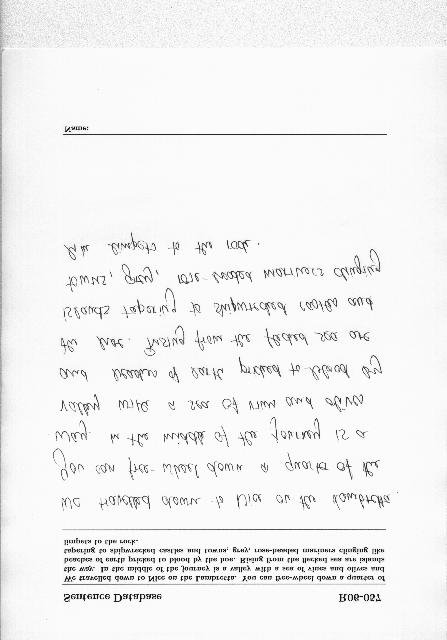 Sentence Database R06-057
We travelled down to Nice on the Lambretta. You can free-wheel down a quarter of
the way. In the middle of the journey is a valley with a sea of vines and olives and
beaches of earth pricked to blood by the hoe. Rising from the flecked sea are islands
tapering to shipwrecked castles and towns, grey, rose-beaded mariners clinging like
limpets to the rock.
We travelled down to Nice on the Lambretta.
You can free-wheel down a quarter of the
way. In the middle of the journey is a
valley with a sea of vines and olives
and beaches of earth pricked to blood by
the hoe. Rising from the flecked sea are
islands tapering to shipwrecked castles and
towns, grey, rose-beaded mariners clinging
like limpets to the rock.
Name: